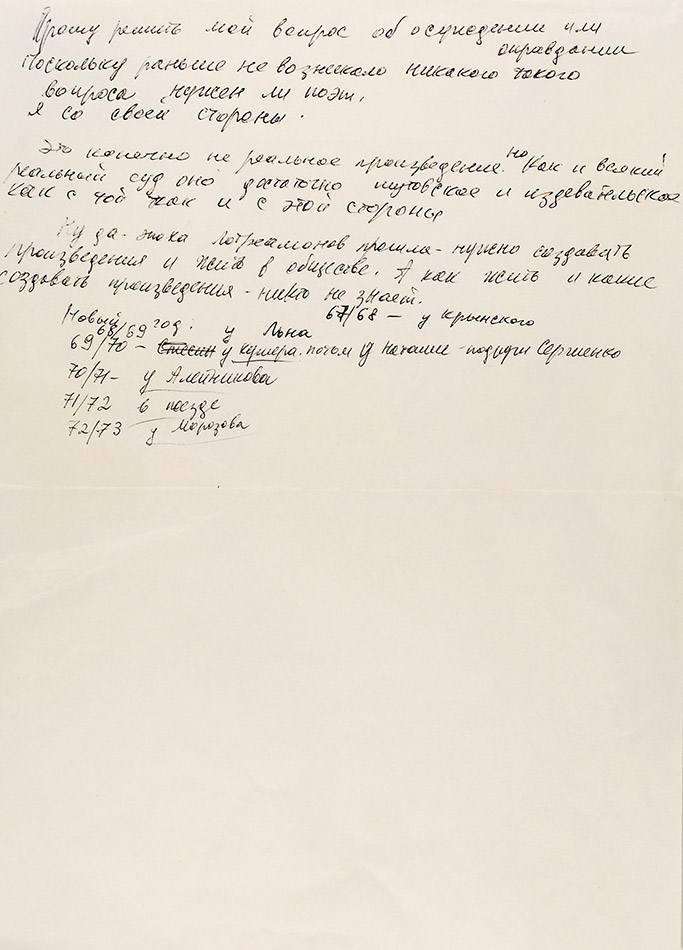 Прошу решить мой вопрос об осуждении или
оправдании
Поскольку раньше не возникало никакого такого
вопроса нужен ли поэт,
я со своей стороны.
Это конечно не реальное произведение. Но как и всякий
реальный суд оно достаточно шутовское и издевательское
как с той так и с этой стороны
Ну да - эпоха Лотреамонов прошла - нужно создавать
произведения и жить в обществе. А как жить и какие
создавать произведения - никто не знает.
Новый год: 67/68 – у Крынского
68/69 у Льна
69/70 – у Кушера. потом у Наташи - подруги Сергиенко
70/71 – у Алейникова
71/72 в поезде
72/73 у Морозова